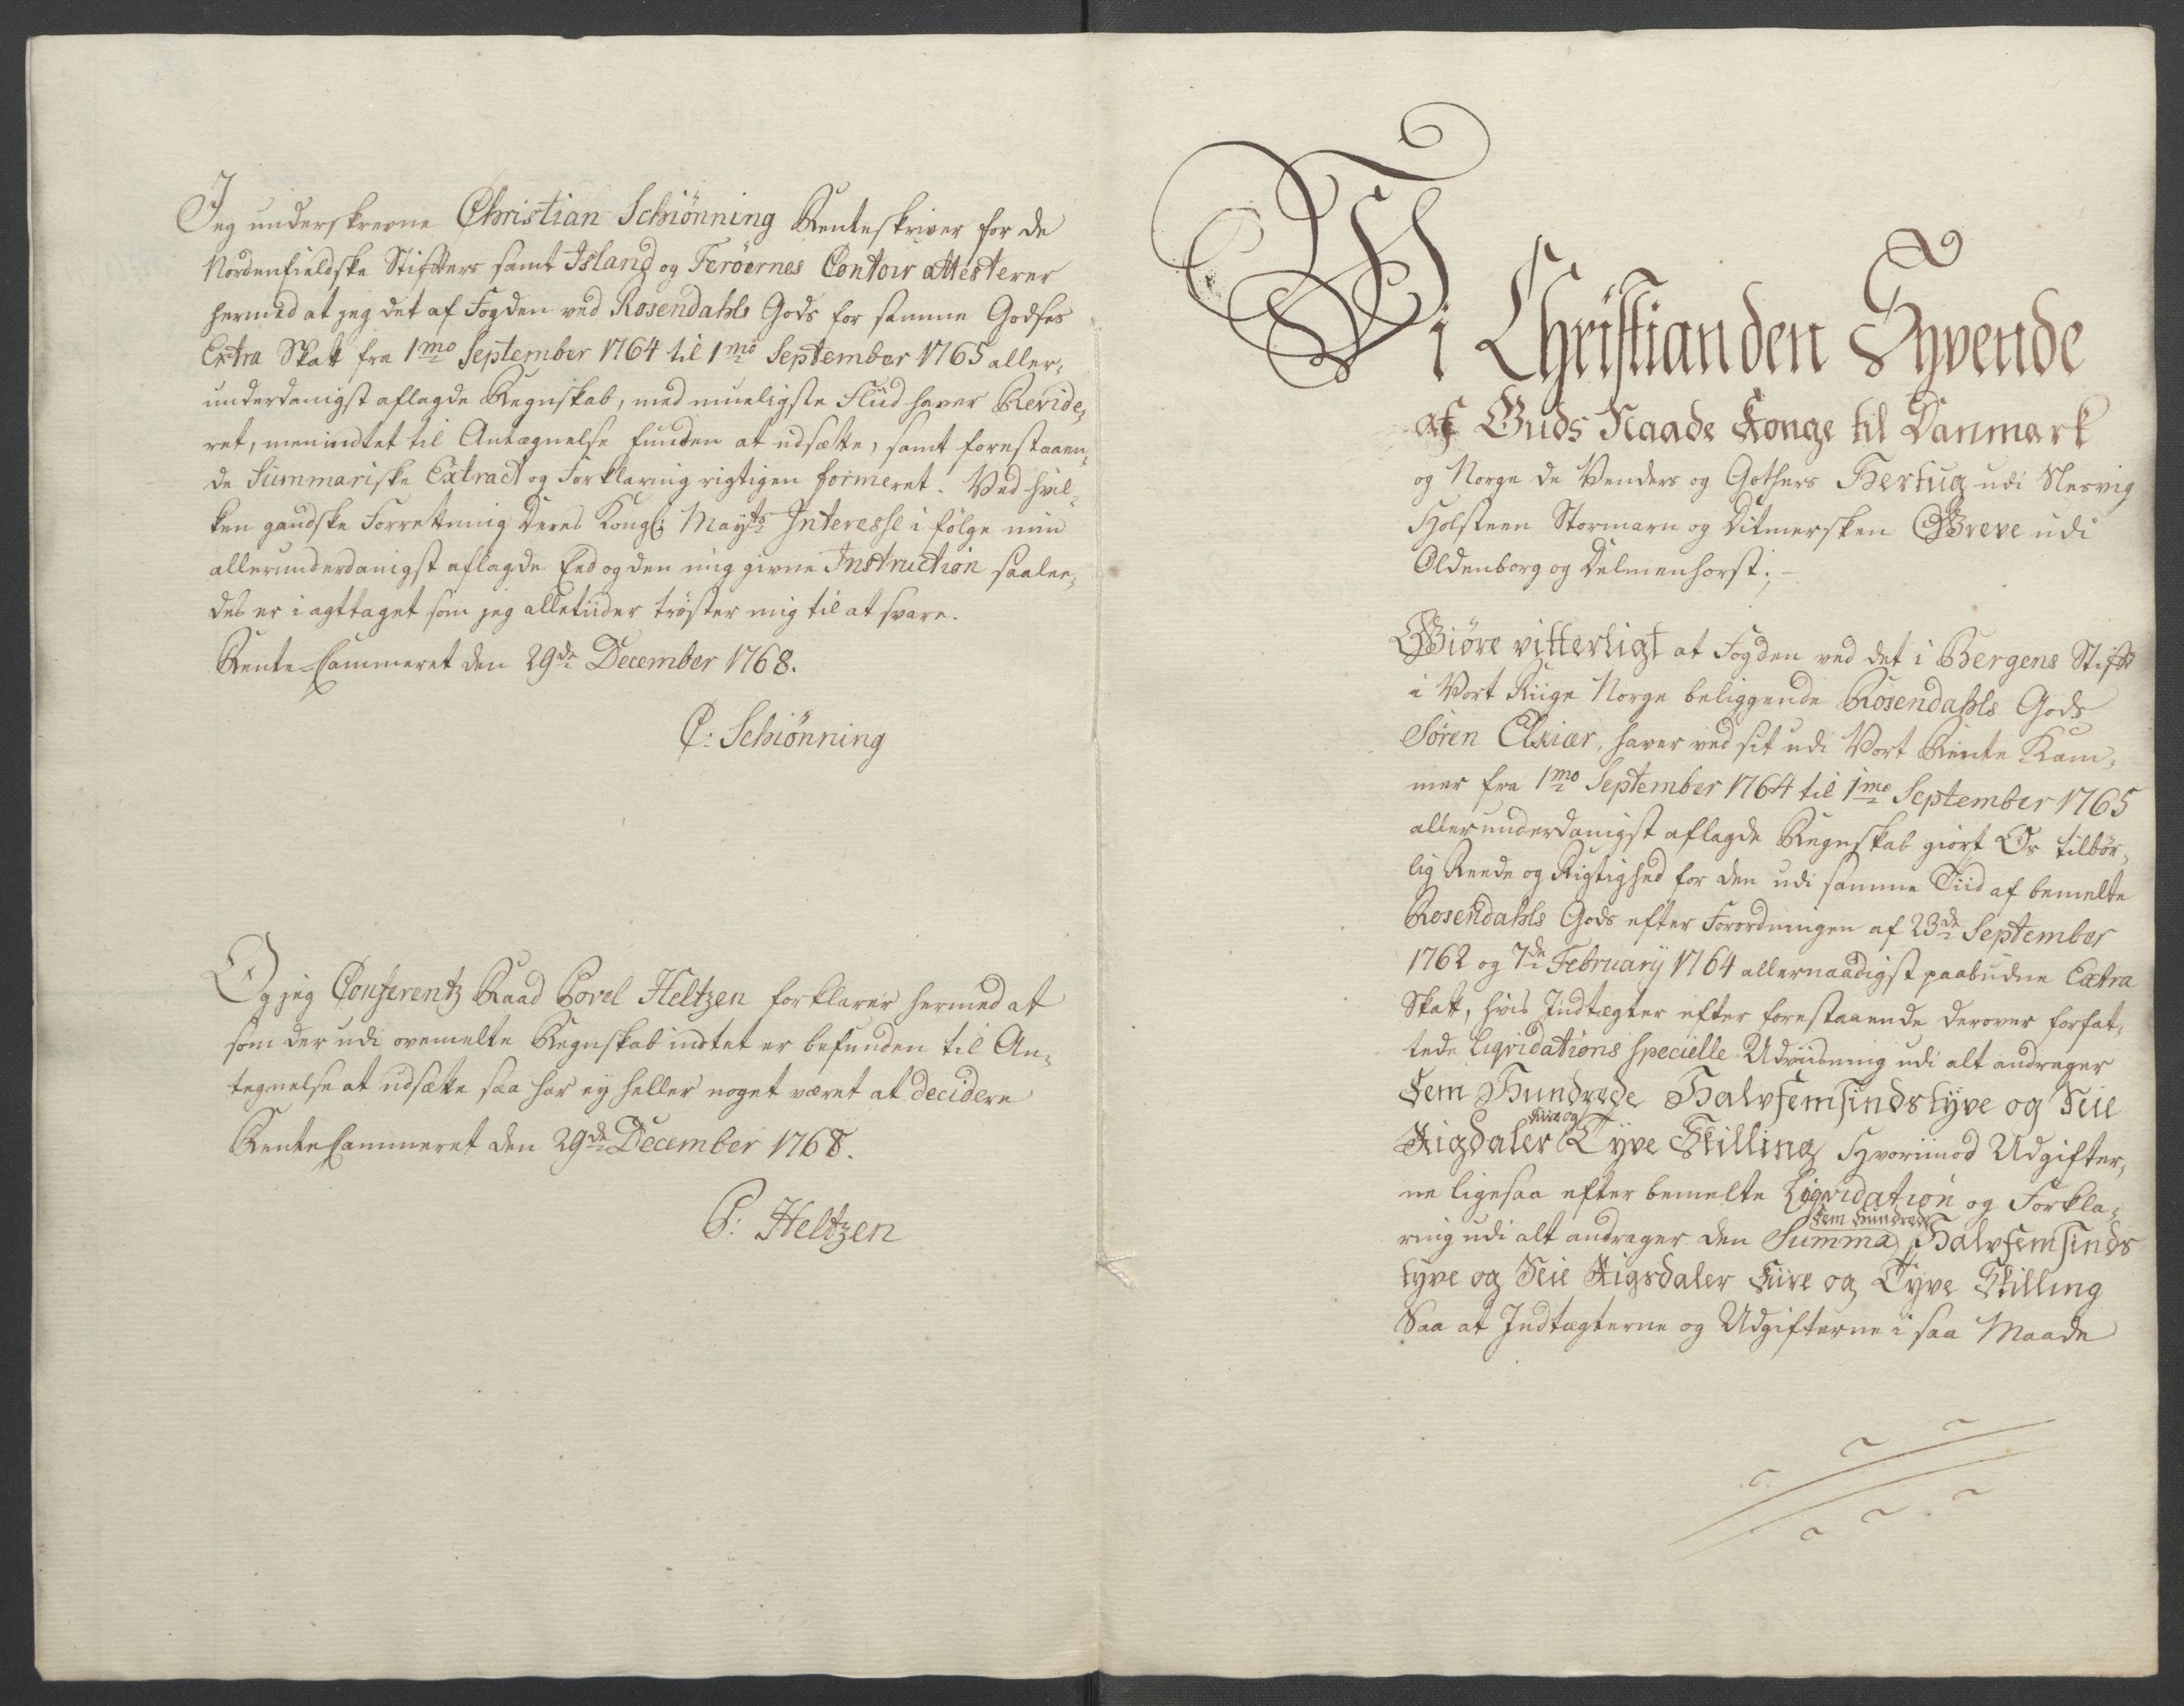 Jeg underskrevne Christian Schiönning Renteskriver for de
Nordenfieldske Stifters samt Island og Feröernes Contoir attesterer
hermed at jeg det af Fogden ved Rosendahls Gods for samme Godses
Extra Skatt fra 1mo September 1764 til 1mo September 1765 aller,
underdanigst aflagde Regnskab, med mueligste Fliid haver Revide,
ret, men indtet til Antægnelse funden at udsætte, samt forestaaen,
de Summariske Extract og Forklaring rigtigen formeret. Ved hvil,
ken gandske Forretning Deres Kongl: Mayts Interesse i fölge min
allerunderdanigst aflagde Eed og den mig givne Instruction saalee,
des er i agttaget som jeg alletiider tröster mig til at svare.
Rente-Cammeret den 29de December 1768.
C: Schiönning
Og jeg Conferentz Raad Povel Heltzen forklarer hermed at
som der udi ovemelte Regnskab indtet er befunden til An,
tegnelse at udsætte saa har ey heller noget været at decidere
Rente Cammeret den 29de December 1768.
P: Heltzen
Wi Christian den Syvende
af Guds Naade Konge til Danmark
og Norge de Venders og Gothers Hertug udi Slesvig
Holsteen Stormarn og Ditmersken Greve udi
Oldenborg og Delmenhorst; -
Giöre vitterligt at Fogden ved det i Bergens Stift
i Vort Riige Norge beliggende Rosendahls Gods
Sören haver ved sit udi Vort Rente Kam,
mer fra 1mo September 1764 til 1mo September 1765
allerunderdanigst aflagde Regnskab giort Os tilbör,
lig Reede og Rigtighed for den udi samme Tiid af bemelte
Rosendahls Gods efter Forordningen af 23de September
1762 og 7de February 1764 allernaadigst paabudne Extra
Skatt, hvis Indtægter efter forestaaende derover forfat,
tede Liqvidations specielle Udviisning udi alt andrager
Fem Hundrede Halvfemsindstyve og Seie
Fiire og
Rigdaler Tyve Skilling Hvoriimod Udgifter,
ne ligesaa efter bemelte Liqvidation og Forkla,
Fem Hundrede
ring udi alt andrager den Summa Halvfemsinds
tyve og Seie Rigsdaler Fiire og Tyve Skilling
Saa at Indtægterne og Udgifterne i saa Maade